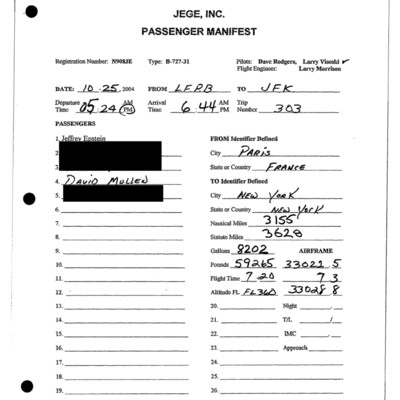 JEGE, INC.
PASSENGER MANIFEST
Registration Number: N908JE Type: B-727-31 Pilots: Dave Rodgers, Larry Visoski ✓
Flight Engineer: Larry Morrison
DATE: 10-25, 2004 FROM LFPB TO JFK
Departure Time 05 24 AM PM Arrival Time 6 44 AM PM Trip Number 303
PASSENGERS
1. Jeffrey Epstein FROM Identifier Defined
City PARIS
State or Country FRANCE
4. DAVID MULLEN TO Identifier Defined
5. City NEW YORK
6. State or Country NEW YORK
7. Nautical Miles 3155
8. Statute Miles 3628
9. Gallons 8202 AIRFRAME
10. Pounds 59265 33021 5
11. Flight Time 7 20 7 3
12. Altitude FL FL360 33028 8
13. 20. Night
14. 21. T/L /
15. 22. IMC
16. 23. Approach
17. 24.
18. 25.
19. 26.